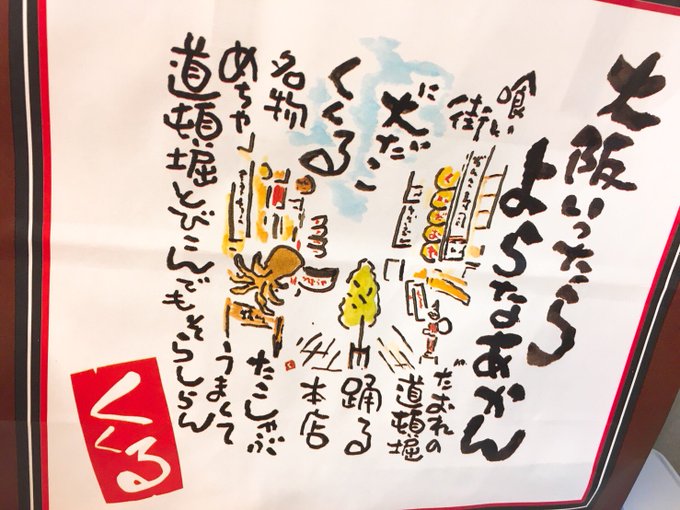 大阪いったら
よらなあかん
喰い
街に
大だこ
くくる
名物
めちゃ
道頓堀とびこんでもそらしらん
だおれの
道頓堀
踊る
本店
たこしゃぶ
うまくて
くくる